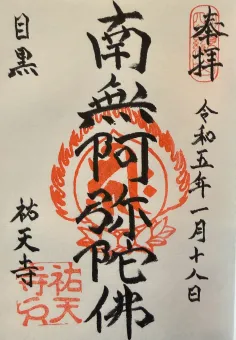 奉拝
令和五年一月十八日
南無阿弥陀佛
目黒
祐天寺
祐天
寺印